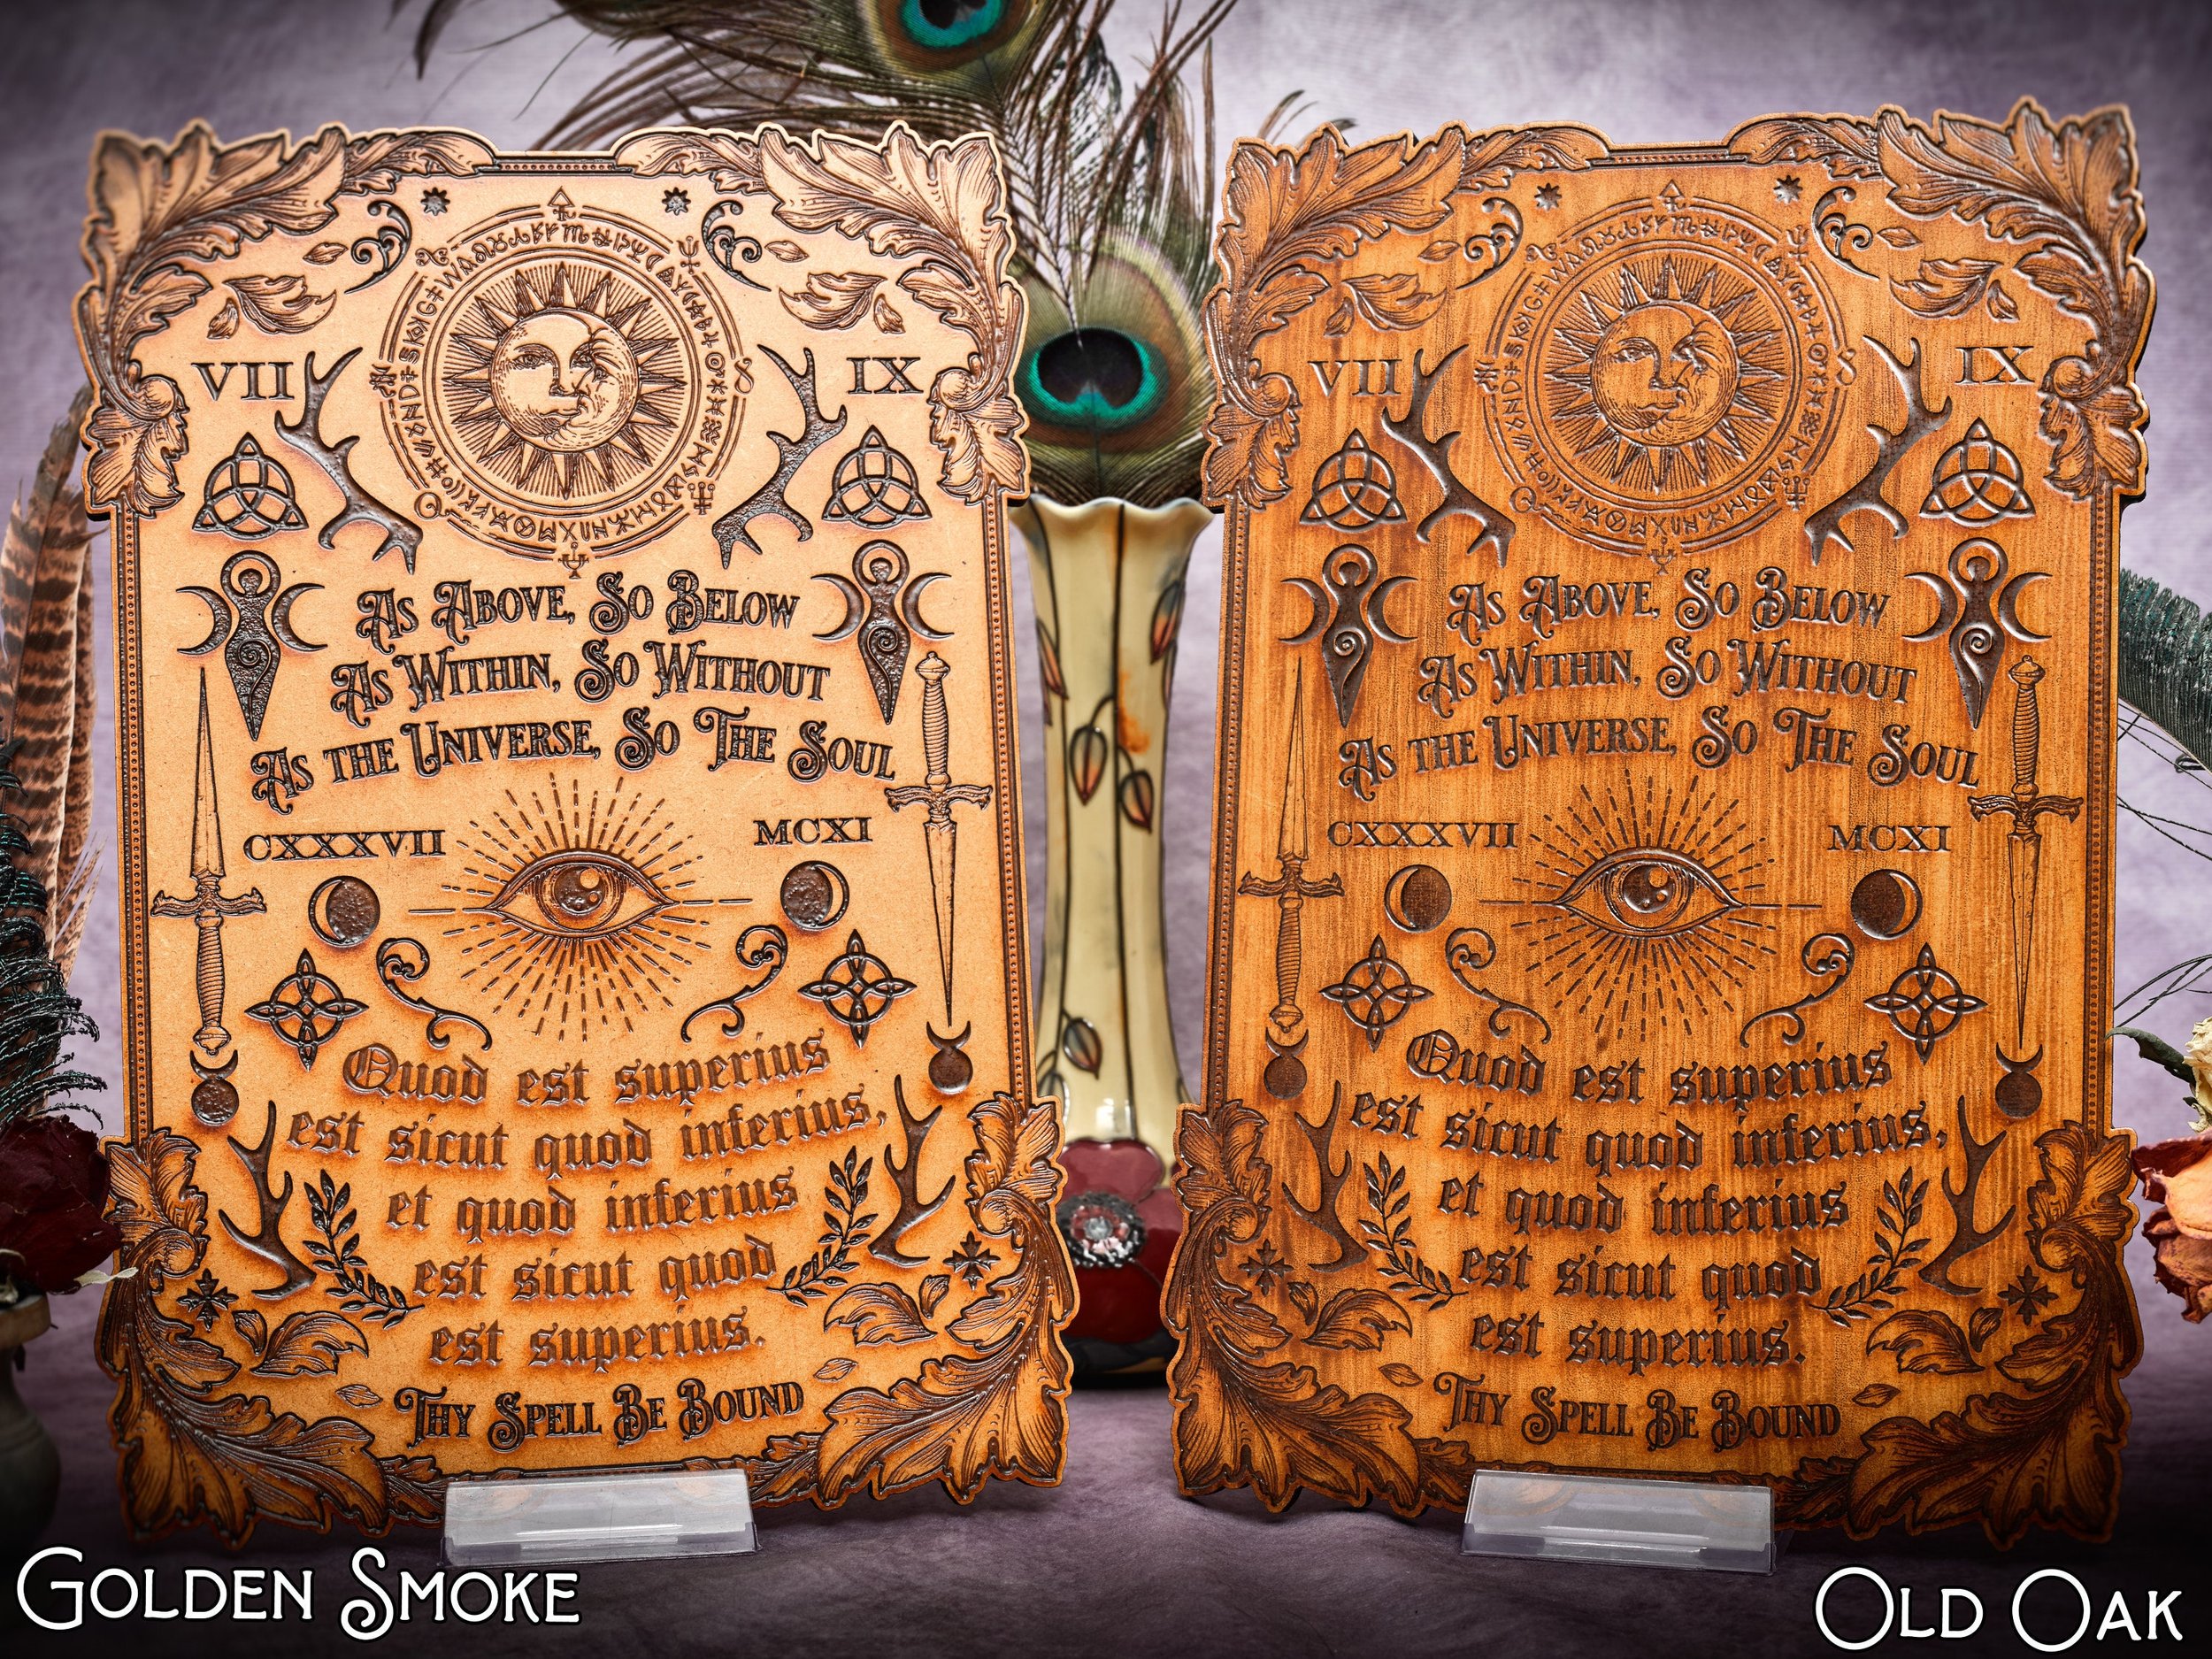 VII IX
As Above, So Below
As Within, So Without
As the Universe, So The Soul
CXXXVII MCXI
Quod est superius
est sicut quod inferius,
et quod inferius
est sicut quod
est superius.
Thy Spell Be Bound
VII IX
As Above, So Below
As Within, So Without
As the Universe, So The Soul
CXXXVII MCXI
Quod est superius
est sicut quod inferius,
et quod inferius
est sicut quod
est superius.
Thy Spell Be Bound
Golden Smoke
Old Oak